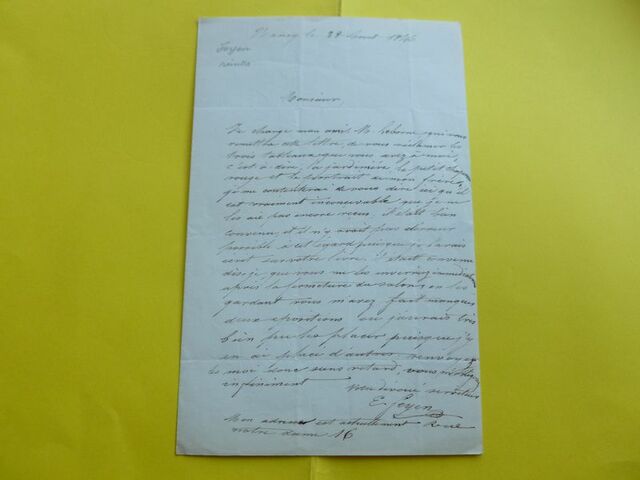 Nancy le 29 Aout
Feyen
Monsieur
Je charge mon ami M. Leborne qui vous
remettra cette lettre, de vous réclamer les
trois tableaux que vous avez à moi,
c'est à dire, la jardinière le petit chaperon
rouge et le portrait de mon frère,
je me contenterai de vous dire ici qu'il
est vraiment inconcevable que je ne
les aie pas encore reçus. il était bien
convenu, et il n'y avait pas d'erreur
possible à cet égard puisque je l'avais
écrit sur votre livre. il était convenu
dis-je, que vous me les enverriez immédiatement
après la fermeture du salon, en les
gardant vous m'avez fait manquer
deux expositions où j'aurais très
bien pu les placer puisque j'y
en ai placé d'autres renvoyez
les moi donc sans retard, vous m'obligerez
infiniment
Votre dévoué serviteur
E. Feyen
Mon adresse est actuellement Rue
notre dame 16